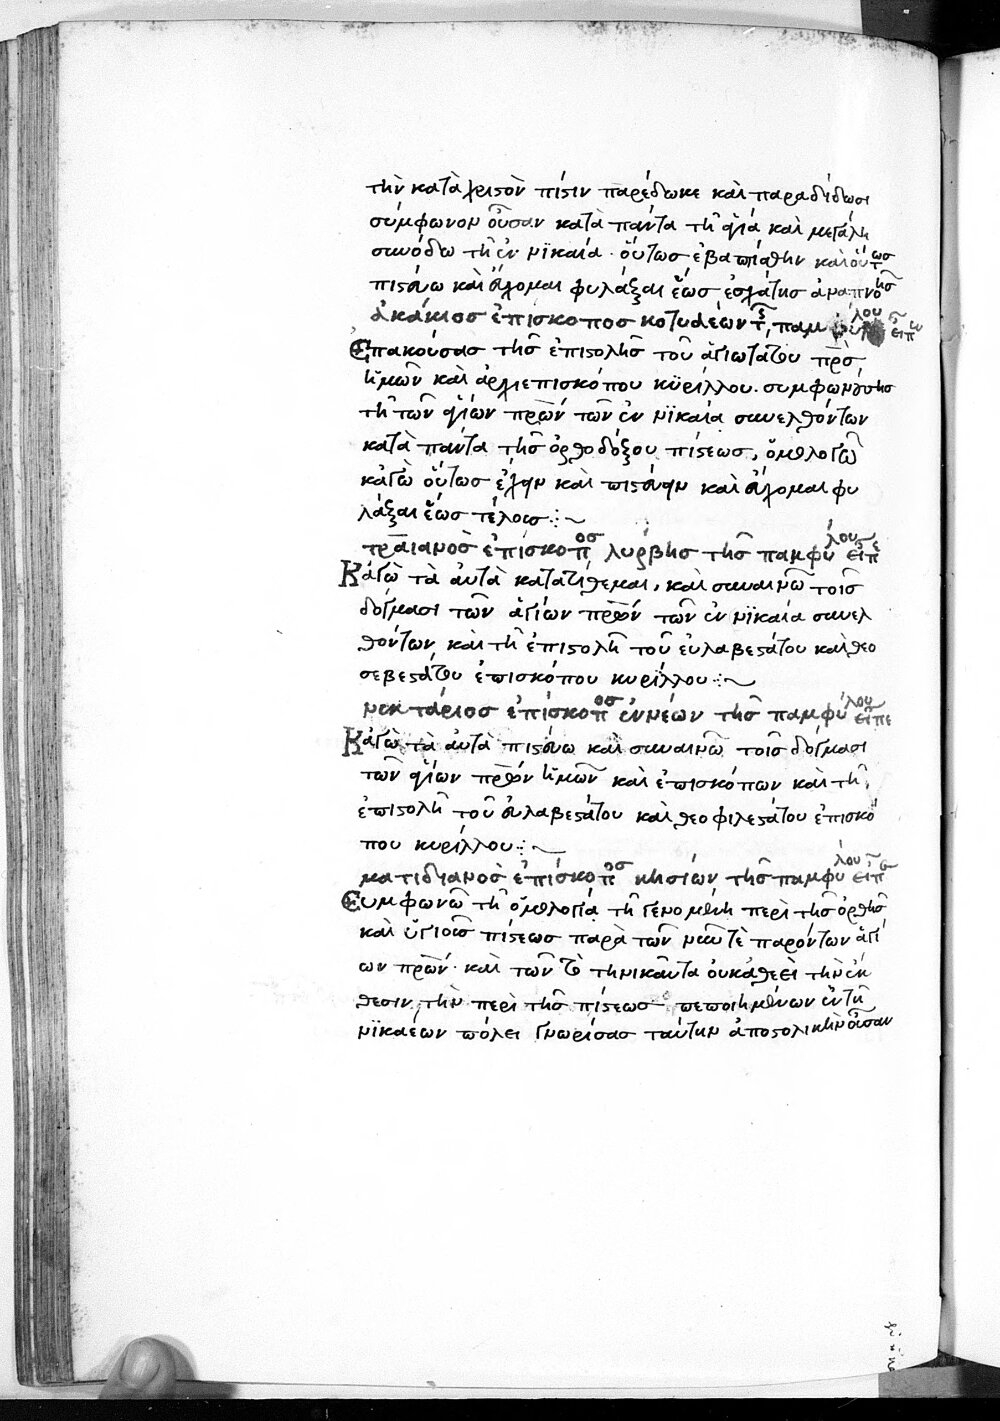 τὴν κατὰ χριστὸν πίστιν παρέδωκε καὶ παραδίδωσι
σύμφωνον οὖσαν κατὰ πάντα τῆ ἁγία καὶ μεγάλη
συνόδω τῆ ἐν νϊκαία · οὕτως ἐβαπτίσθην καὶ οὕτως
πιστεύω καὶ εὔχομαι φυλάξαι ἕως ἐσχάτης ἀναπνοῆς
ἀκάκιος ἐπίσκοπος κοτυδέων τῆς παμφύλου εἶπεν
Ἐπακούσας τῆς ἐπιστολῆς τοῦ ἁγιωτάτου πρς
ἡμῶν καὶ ἀρχιεπισκόπου κϋρίλλου · συμφωνούσης
τῆ τῶν ἁγίων πρων τῶν ἐν νϊκαία συνελθόντων
κατὰ πάντα τῆς ὀρθοδόξου πίστεως, ὁμολογῶ
κἀγὼ οὕτως ἔχειν καὶ πιστεύειν καὶ εὔχομαι φυ
λάξαι ἕως τέλους :~
τραϊανὸς ἐπίσκοπος λυρβης τῆς παμφύλου εἶπε
Κἀγὼ τὰ αὐτὰ κατατίθεμαι, καὶ συναινῶ τοῖς
δόγμασι τῶν ἁγίων πρων τῶν ἐν νϊκαία συνελ
θόντων, καὶ τῆ ἐπιστολῆ τοῦ εὐλαβεστάτου καὶ θεο
σεβεστάτου ἐπισκόπου κυρίλλου :~
νεκτάριος ἐπίσκοπος ἐννέων τῆς παμφύλου εἶπε
Κἀγὼ τὰ αὐτὰ πιστεύω καὶ συναινῶ τοῖς δόγμασι
τῶν ἁγίων πρων ἡμῶν καὶ ἐπισκόπων καὶ τῆ
ἐπιστολῆ τοῦ εὐλαβεστάτου καὶ θεοφιλεστάτου ἐπισκό
που κυρίλλου :~
ματιδιανὸς ἐπίσκοπος κησίων τῆς παμφύλου εἶπε
Συμφωνῶ τῆ ὁμολογία τῆ γενομένη περὶ τῆς ὀρθῆς
καὶ ὑγιοῦς πίστεως παρὰ τῶν νῦν τὲ παρόντων ἁγί
ων πρων · καὶ τῶν τὸ τηνικαῦτα
θεσιν τὴν περὶ τῆς πίστεως πεποιημένων ἐν τῆ
νϊκαέων πόλει γνωρίσας ταύτην ἀποστολικὴν οὖσαν